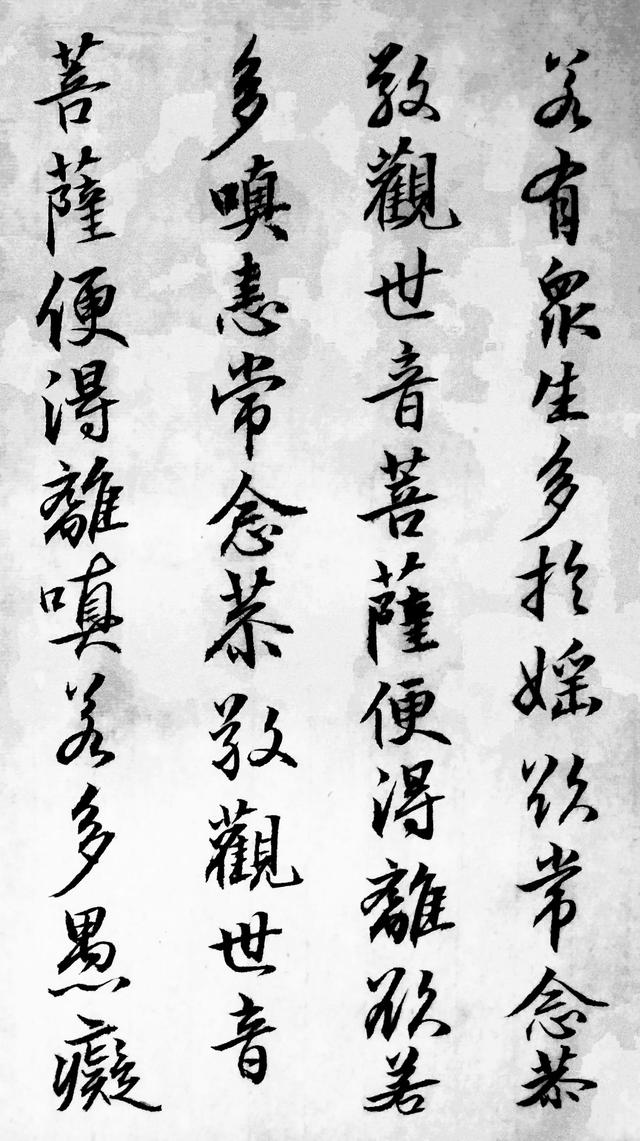 若有眾生多於婬欲常念恭
敬觀世音菩薩便得離欲若
多嗔恚常念恭敬觀世音
菩薩便得離嗔若多愚癡